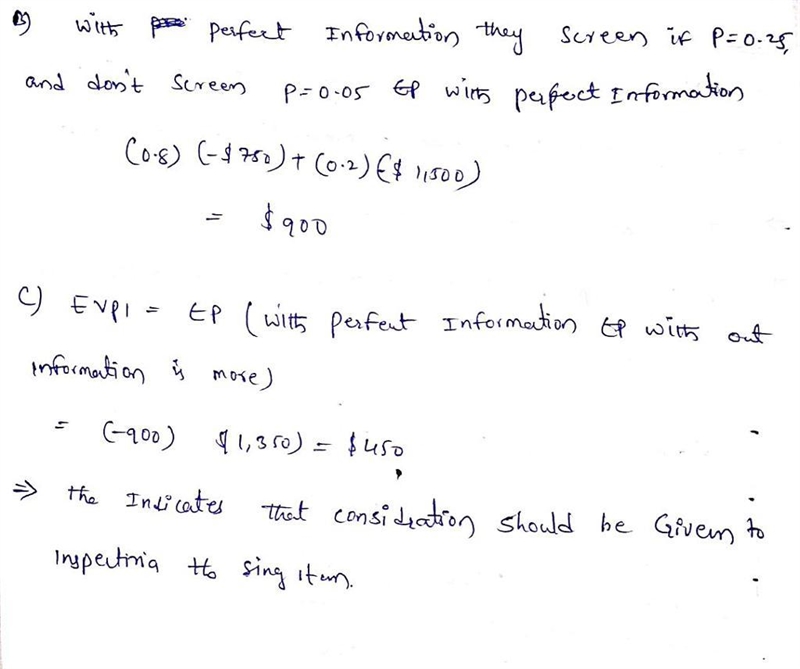 B) With perfect Information they Screen if P=0.25,
and don't Screen P=0.05 EP with perfect Information
(0.8) (-$750) + (0.2) (-$ 1,500)
= $900
C) EVPI = EP (with perfect Information EP with out
information is more)
= (-900) $1,350) = $450
⇒ the Indicates that consideration should be Given to
Inspecting sing item.